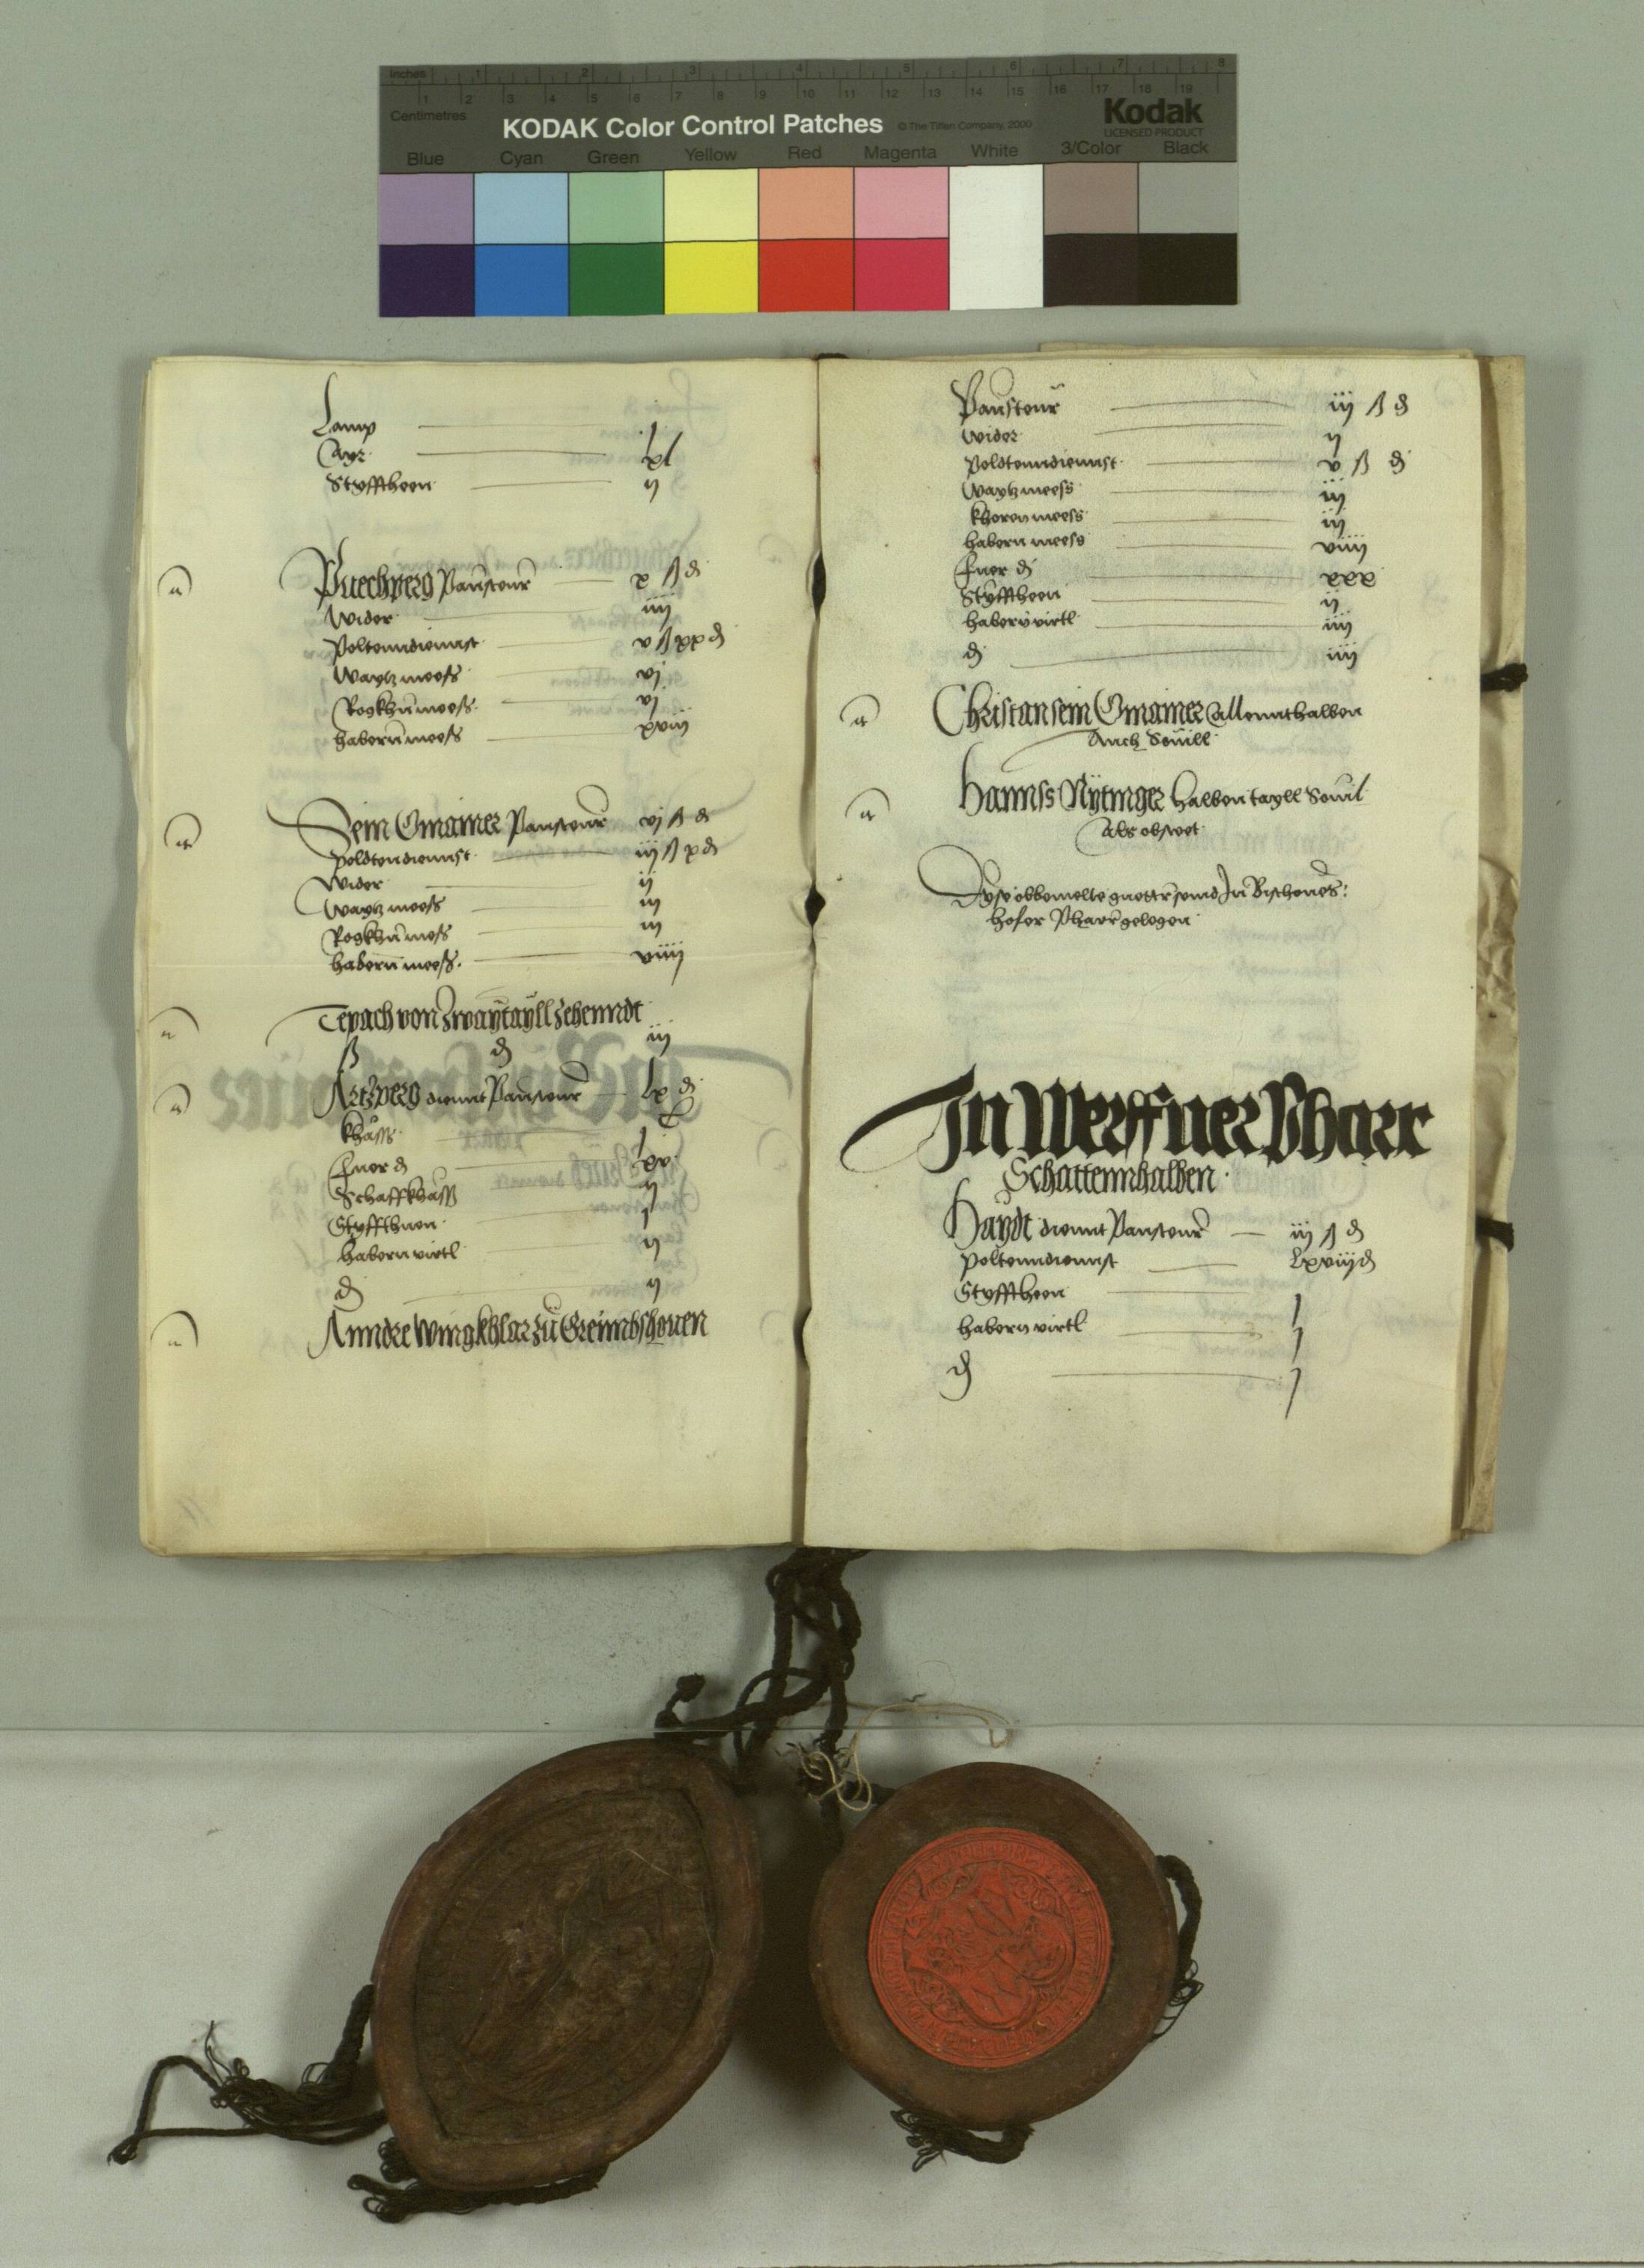 Inches 1 2 3 4 5 6 7 8
Centimetres 1 2 3 4 5 6 7 8 9 10 11 12 13 14 15 16 17 18 19
KODAK Color Control Patches © The Tiffen Company, 2000 Kodak
LICENSED PRODUCT
Blue Cyan Green Yellow Red Magenta White 3/Color Black
Lamp j
Ayr xl
Styfftheen ij
Puechperg Pausteur x ß d
Wider iiij
Poltenndiennst v ß xx d
Waytzmeess vj
Rogkhnmeess vj
habernmeess xviij
Sein Omainer Pausteur vj ß d
poldtendiennst iij ß x d
Wider ij
Waytzmeess iij
Rogkhnmess iij
habernmeess viiij
Tepach von Zwaytayll Zehenndt iij
ß d
Artzperg diennt Pausteur lx d
khäss j
Fuer d xv
Schaffkhäss ij
Styffthuen j
habernvirtl ij
d ij
Anndre Wingkhlar zu Greimbshouen
Pausteur iij ß d
Wider ij
Poldtenndiennst v ß d
Waytzmeess iij
khornmeess iij
habernmeess viiij
Fuer d xxx
Styfftheen ij
habernvirtl iiij
d iiij
Christan sein Omainer allennthalben
Auch Souill
Hannss Nÿtinger halben tayll Souil
Als obsteet
Dyse obbemelte guetter seind In Bischoues:
hofer Pharr gelegen
In Werffner Pharr
Schattennhalben
Haydt diennt Pausteur iij ß d
Poltenndiennst lxviij d
Styfftheen j
habernvirtl j
d j